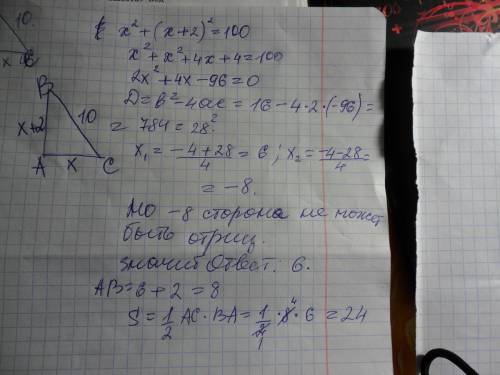 10.
x
C
B
x+2
10
A
x
C
x²+(x+2)²=100
x²+x²+4x+4=100
2x²+4x-96=0
D=b²-4ac=16-4·2·(-96)=
=784=28².
x₁=(-4+28)/4=6; x₂=(-4-28)/4=
=-8.
Но -8 сторона не может
быть отриц.
значит Ответ: 6.
AB=6+2=8
S=1/2 AC·BA=1/2·8·6=24
4
1